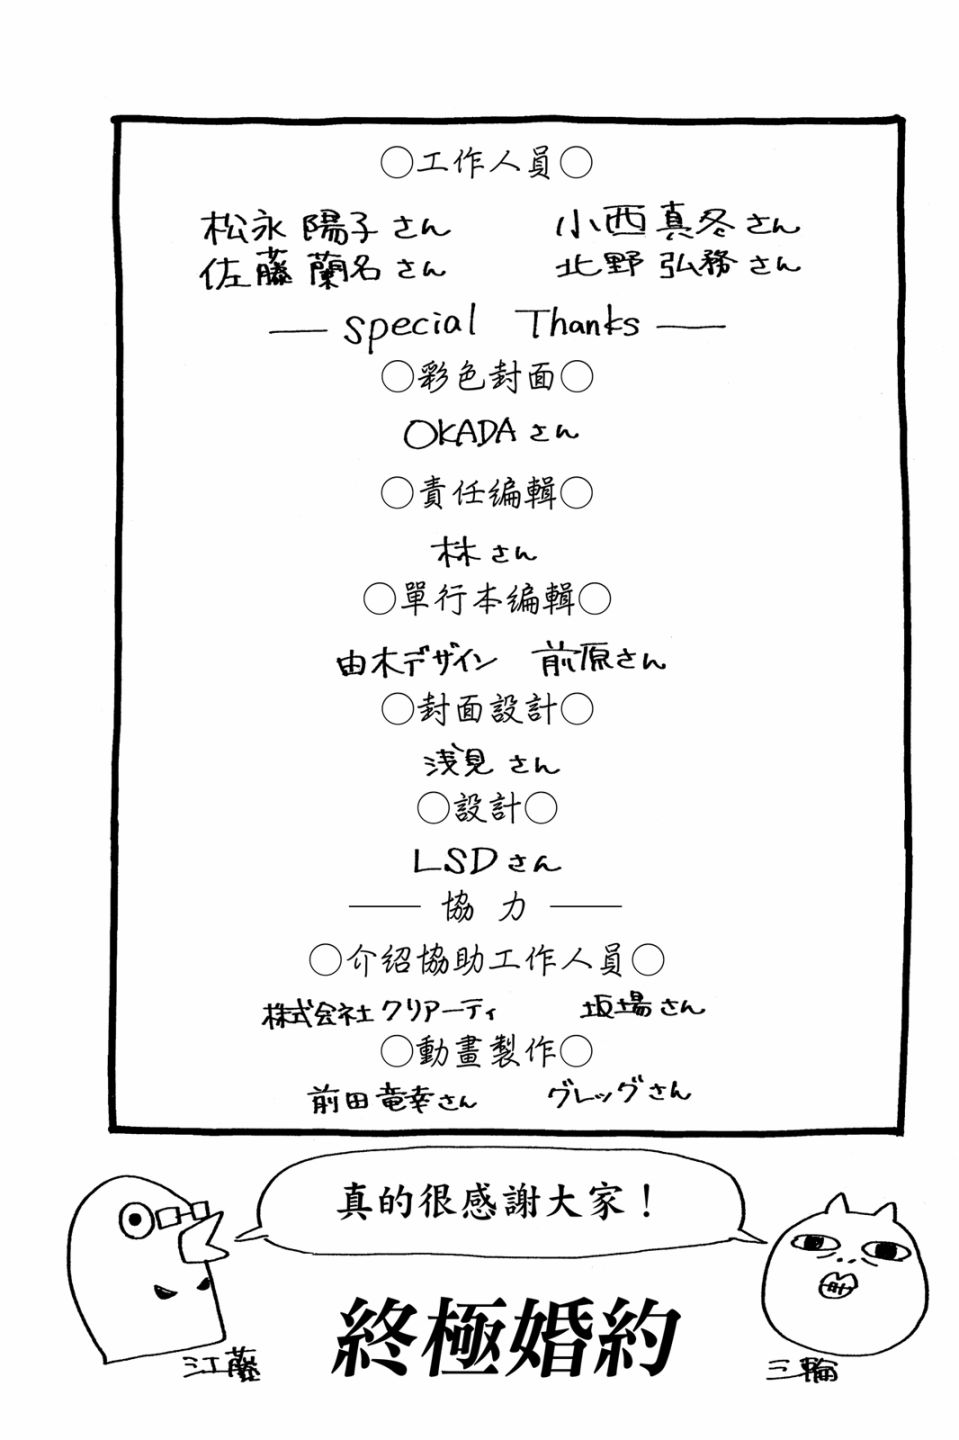 ○工作人員○
松永 陽子さん 小西真冬さん
佐藤 蘭名さん 北野 弘務さん
— Special Thanks —
○彩色封面○
OKADAさん
○責任編輯○
林さん
○單行本編輯○
由木デザイン 前原さん
○封面設計○
浅見さん
○設計○
LSDさん
— 協力 —
○介紹協助工作人員○
株式会社クリアーティ 坂場さん
○動畫製作○
前田竜幸さん グレッグさん
真的很感謝大家！
江藤
終極婚約
三輪